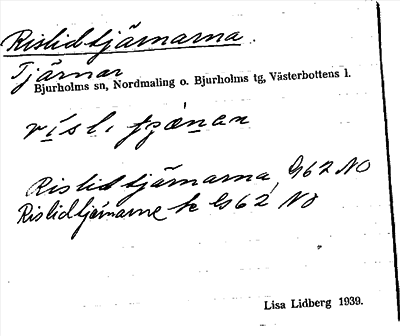 Rislidtjärnarna.
Tjärnar
Bjurholms sn, Nordmaling o. Bjurholms tg, Västerbottens l.
Rislidtjärnarna, G62 NO
Rislidtjärnarne k G62 NO
Lisa Lidberg 1939.